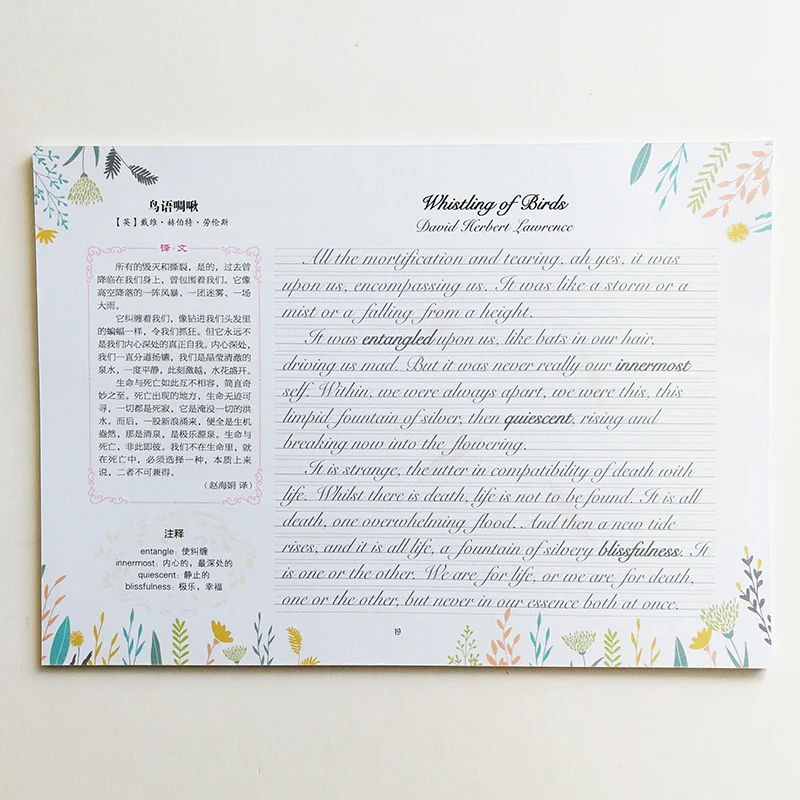 鸟语啁啾
【英】戴维·赫伯特·劳伦斯
译·文
所有的毁灭和撕裂，是的，过去曾
降临在我们身上，曾包围着我们。它像
高空降落的一阵风暴、一团迷雾、一场
大雨。
它纠缠着我们，像钻进我们头发里
的蝙蝠一样，令我们抓狂。但它永远不
是我们内心深处的真正自我。内心深处，
我们一直分道扬镳，我们是晶莹清澈的
泉水，一度平静，此刻激越，水花盛开。
生命与死亡如此互不相容，简直奇
妙之至。死亡出现的地方，生命无迹可
寻，一切都是死寂，它是淹没一切的洪
水。而后，一股新浪涌来，便全是生机
盎然，那是清泉，是极乐源泉。生命与
死亡，非此即彼。我们不在生命里，就
在死亡中，必须选择一种，本质上来
说，二者不可兼得。
（赵海娟 译）
注释
entangle：使纠缠
innermost：内心的，最深处的
quiescent：静止的
blissfulness：极乐，幸福
Whistling of Birds
David Herbert Lawrence
All the mortification and tearing, ah yes, it was
upon us, encompassing us. It was like a storm or a
mist or a falling from a height.
It was entangled upon us, like bats in our hair,
driving us mad. But it was never really our innermost
self. Within, we were always apart, we were this, this
limpid fountain of silver, then quiescent, rising and
breaking now into the flowering.
It is strange, the utter in compatibility of death with
life. Whilst there is death, life is not to be found. It is all
death, one overwhelming flood. And then a new tide
rises, and it is all life, a fountain of silvery blissfulness. It
is one or the other. We are for life, or we are for death,
one or the other, but never in our essence both at once.
19